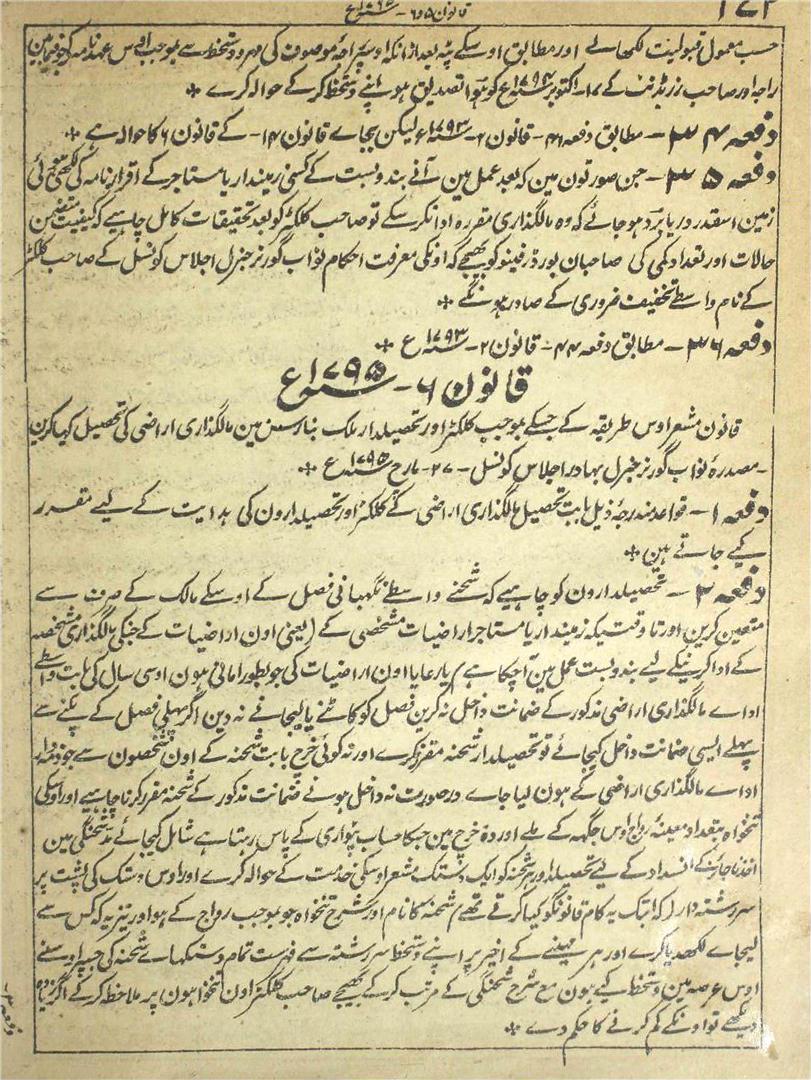 قانون ۵ و ۶ - سنہ ۱۷۹۵ع
حسب معمول قبولیت لکھالے اور مطابق اوسکے پٹہ بعد ازانکہ اوسپر راجۂ موصوف کی مہر و دستخط سے بموجب اوس عہدنامہ کی جو فیمابین
راجہ اور صاحب رزیڈنٹ کے ۱۷- اکتوبر سنہ ۱۷۹۴ع کو ہوا تصدیق ہو اپنے دستخط کرکے حوالہ کرے
دفعہ ۳۴ - مطابق دفعہ ۴۶ - قانون ۲ - سنہ ۱۷۹۳ع لیکن بجاے قانون ۱۴ - کے قانون ۶ کا حوالہ ہے
دفعہ ۳۵ - جن صورتون مین کہ بعد عمل مین آنے بندوبست کے کسی زمیندار یا مستاجر کے اقرارنامہ کی لکھی ہوئی
زمین اسقدر دریا برد ہو جائے کہ وہ مالگذاری مقررہ ادا نکر سکے تو صاحب کلکٹر کو بعد تحقیقات کامل چاہیے کہ کیفیت متضمن
حالات اور تعداد کمی کی صاحبان بورڈ رفینو کو بھیجے کہ اونکی معرفت احکام نواب گورنر جنرل اجلاس کونسل کے صاحب کلکٹر
کے نام واسطے تخفیف ضروری کے صادر ہونگے
دفعہ ۳۶ - مطابق دفعہ ۴۴ - قانون ۲ - سنہ ۱۷۹۳ع
قانون ۶ - سنہ ۱۷۹۵ع
قانون مشعر اوس طریقہ کے جسکے بموجب کلکٹر اور تحصیلدار ملک بنارس مین مالگذاری اراضی کی تحصیل کیا کرین
- مصدرۂ نواب گورنر جنرل بہادر اجلاس کونسل - ۲۷ - مارچ سنہ ۱۷۹۵ع
دفعہ ۱ - قواعد مندرجۂ ذیل بابت تحصیل مالگذاری اراضی کے کلکٹر اور تحصیلدارون کی ہدایت کے لیے مقرر
کیے جاتے ہین
دفعہ ۲ - تحصیلدارون کو چاہیے کہ شحنے واسطے نگہبانی فصل کے اوسکے مالک کے صرف سے
متعین کرین اور تا وقتیکہ زمیندار یا مستاجر اراضیات مشخصی کے (یعنی اون اراضیات کے جنکی مالگذاری مشخصہ
کے ادا کرنیکے لیے بندوبست عمل مین آچکا ہے) یا رعایا اون اراضیات کی جو بطور امانی ہون اوسی سال کی بابت واسطے
اداے مالگذاری اراضی مذکور کے ضمانت داخل نہ کرین فصل کو کاٹنے یا لیجانے نہ دین اگر پہلی فصل کے پکنے سے
پہلے ایسی ضمانت داخل کیجائے تو تحصیلدار شحنہ مقرر نکرے اور نہ کوئی خرچ بابت شحنہ کے اون شخصون سے جو ذمہ دار
اداے مالگذاری اراضی کے ہون لیا جاے درصورت نہ داخل ہونے ضمانت مذکور کے شحنہ مقرر کرنا چاہیے اور اوسکی
تنخواہ بتعداد معینۂ رواج اوس جگہہ کے ملے اور دہ خرچ مین جسکا حساب پٹواری کے پاس رہتا ہے شامل کیجائے مد شحنگی مین
اخذ ناجائز کے انسداد کے لیے تحصیلدار ہر شحنہ کو ایک دستک مشعر اوسکی خدمت کے حوالہ کرے اور اوس دستک کی پشت پر
سررشتہ دار (کہ ابتک یہ کام قانونگو کیا کرتے تھے) شحنہ کا نام اور شرح تنخواہ جو بموجب رواج کے ہو اور نیز یہ کہ کس سے
لیجاے لکھدیا کرے اور ہر مہینے کے اخیر پر اپنے دستخط سررشتہ سے فہرست تمام دستکہاے شحنہ کی جسپر اوسنے
اوس عرصہ مین دستخط کیے ہون مع شرح شحنگی کے مرتب کرکے بھیجے صاحب کلکٹر اون تنخواہون پر ملاحظہ کرکے اگر زیادہ
دیکھے تو اونکے کم کرنے کا حکم دے
دفعہ ۳ -